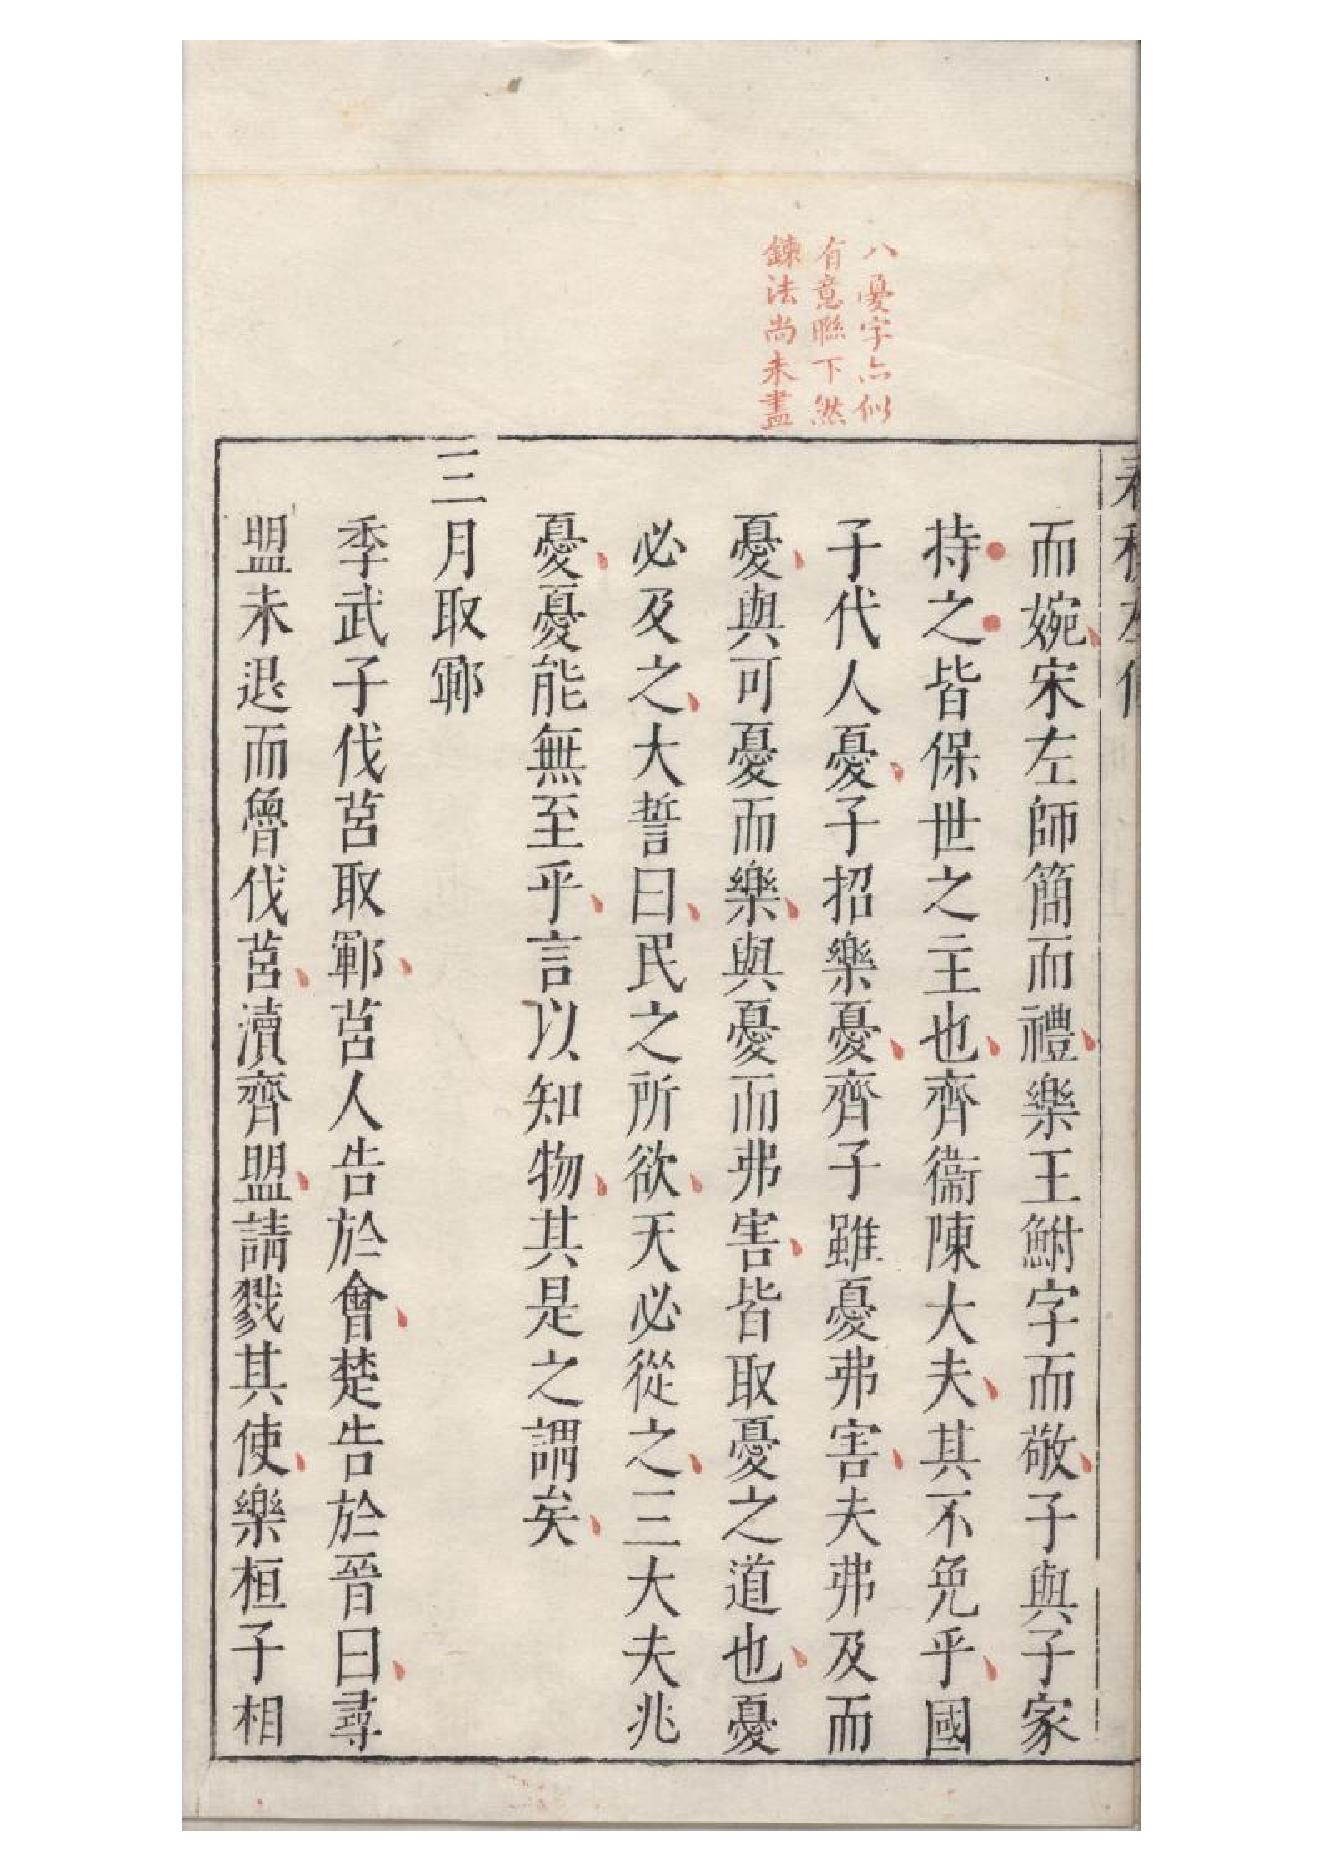 八憂字亦似
有意聯下然
鍊法尚未盡
春秋左傳
而婉宋左師簡而禮樂王鮒字而敬子與子家
持之皆保世之主也齊衞陳大夫其不免乎國
子代人憂子招樂憂齊子雖憂弗害夫弗及而
憂與可憂而樂與憂而弗害皆取憂之道也憂
必及之大誓曰民之所欲天必從之三大夫兆
憂憂能無至乎言以知物其是之謂矣
三月取鄆
季武子伐莒取鄆莒人告於會楚告於晉曰尋
盟未退而魯伐莒瀆齊盟請戮其使樂桓子相